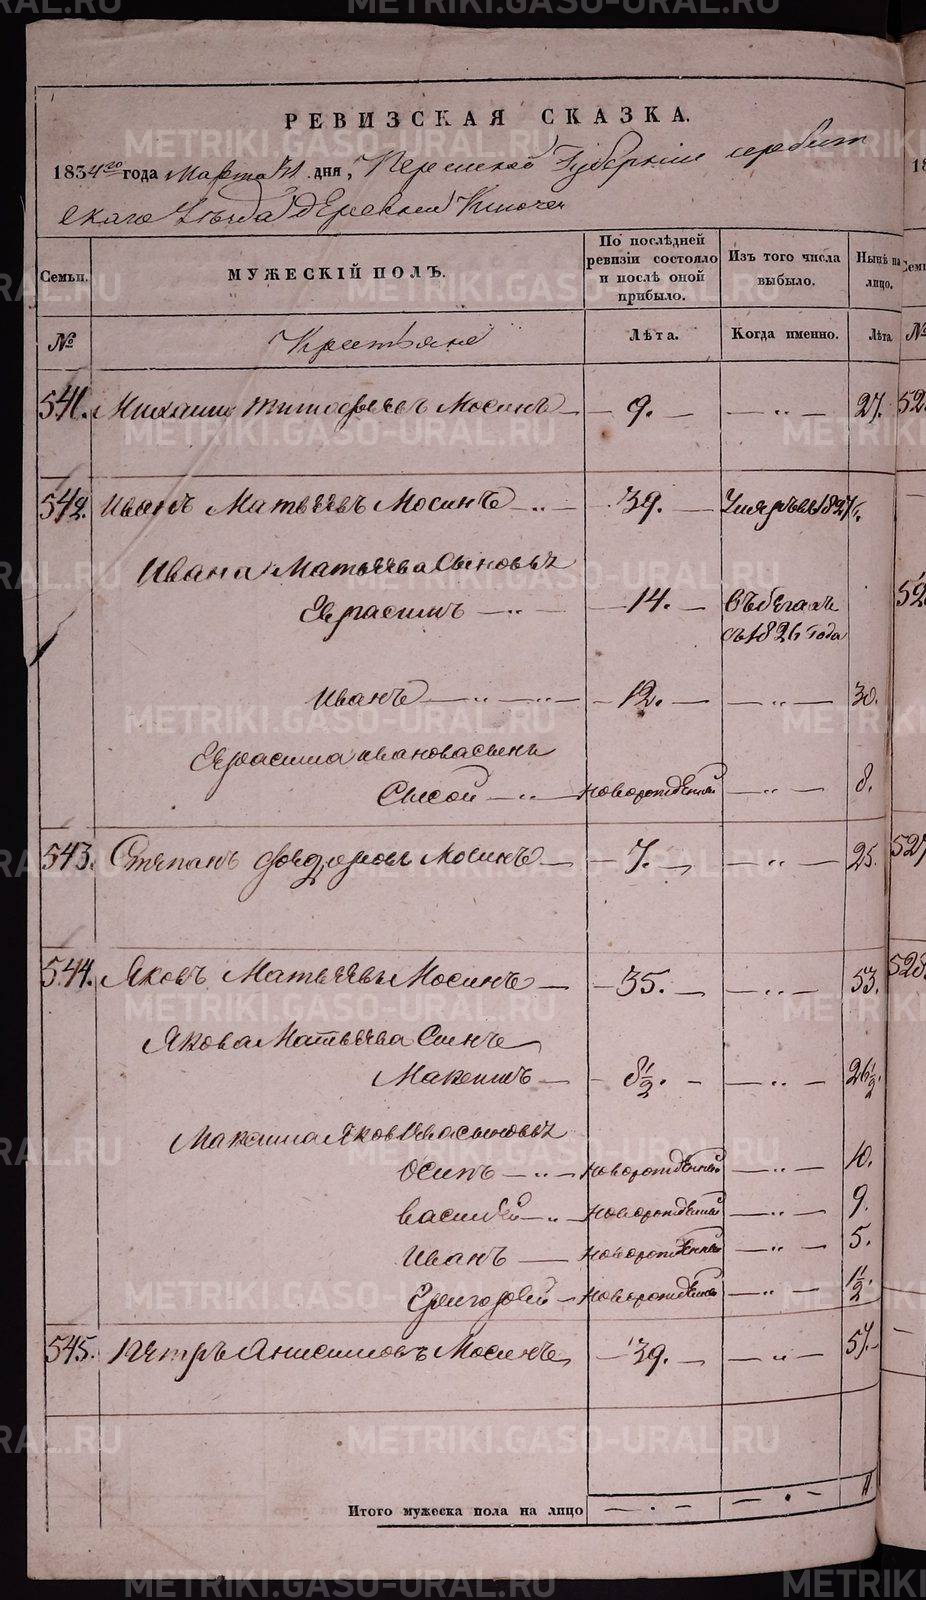 РЕВИЗСКАЯ СКАЗКА.
1834го года Марта 31 дня, Пермской Губернии Ирбит
скаго Уезда Деревни Ключей
Семьи. МУЖЕСКІЙ ПОЛЪ. По послѣдней ревизіи состояло и послѣ оной прибыло. Изъ того числа выбыло. Нынѣ на лицо.
№ Крестьяне Лѣта. Когда именно. Лѣта
541. Михаилъ Тимофеевъ Мосинъ — 9. — — „ — 27.
542. Иванъ Матвеевъ Мосинъ — 39. — Умеръ въ 1827 г.
Ивана Матвеева Сыновья
Герасимъ — „ — 14. — Въ бегахъ
съ 1826 года
Иванъ — „ — „ — 12. — — „ — 30.
Герасима Иванова сынъ
Сысой — „ — новорожденный — „ — 8.
543. Степанъ Федоровъ Мосинъ — 7. — — „ — 25.
544. Яковъ Матвеевъ Мосинъ — 35. — — „ — 53.
Якова Матвеева Сынъ
Максимъ — 8½. — — „ — 26½.
Максима Яковлева сыновья
Осипъ — „ — новорожденный — „ — 10.
Василей — „ — новорожденный — „ — 9.
Иванъ — новорожденный — „ — 5.
Григорей — новорожденный — „ — 1½.
545. Петръ Анисимовъ Мосинъ — 39. — — „ — 57.
Итого мужеска пола на лицо — . — — . — 11
METRIKI.GASO-URAL.RU